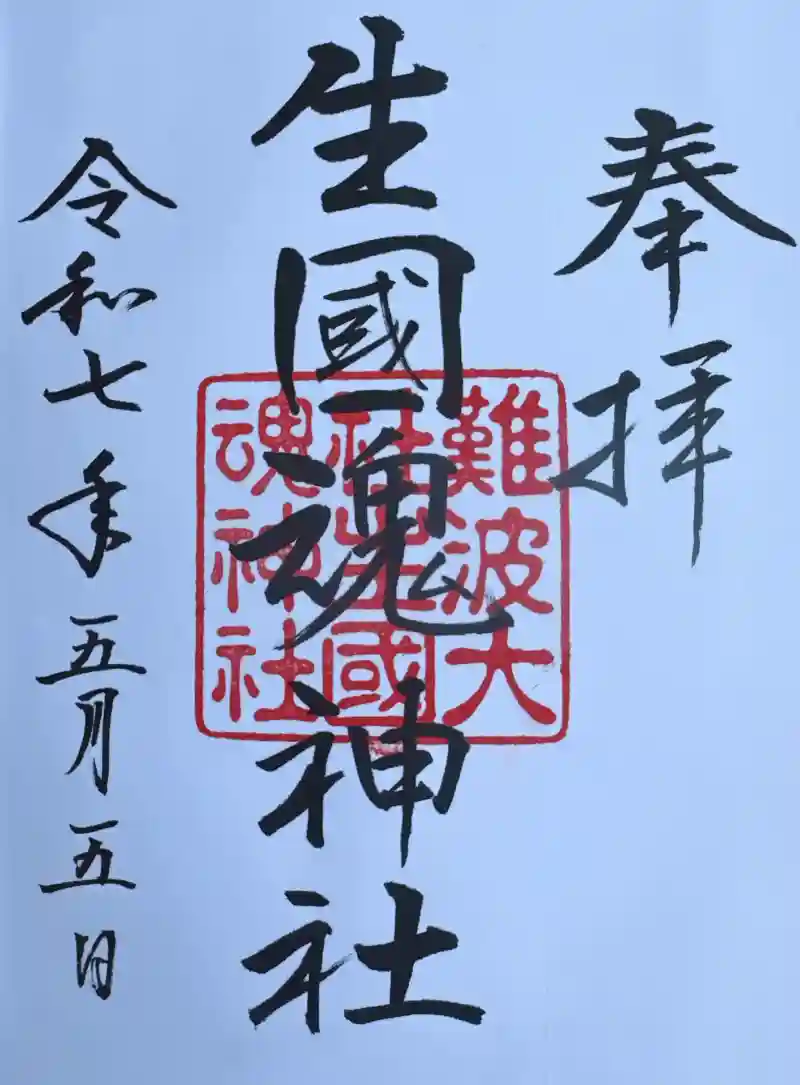 奉拝
難波大
社生國
魂神社
生國魂神社
令和七年五月五日